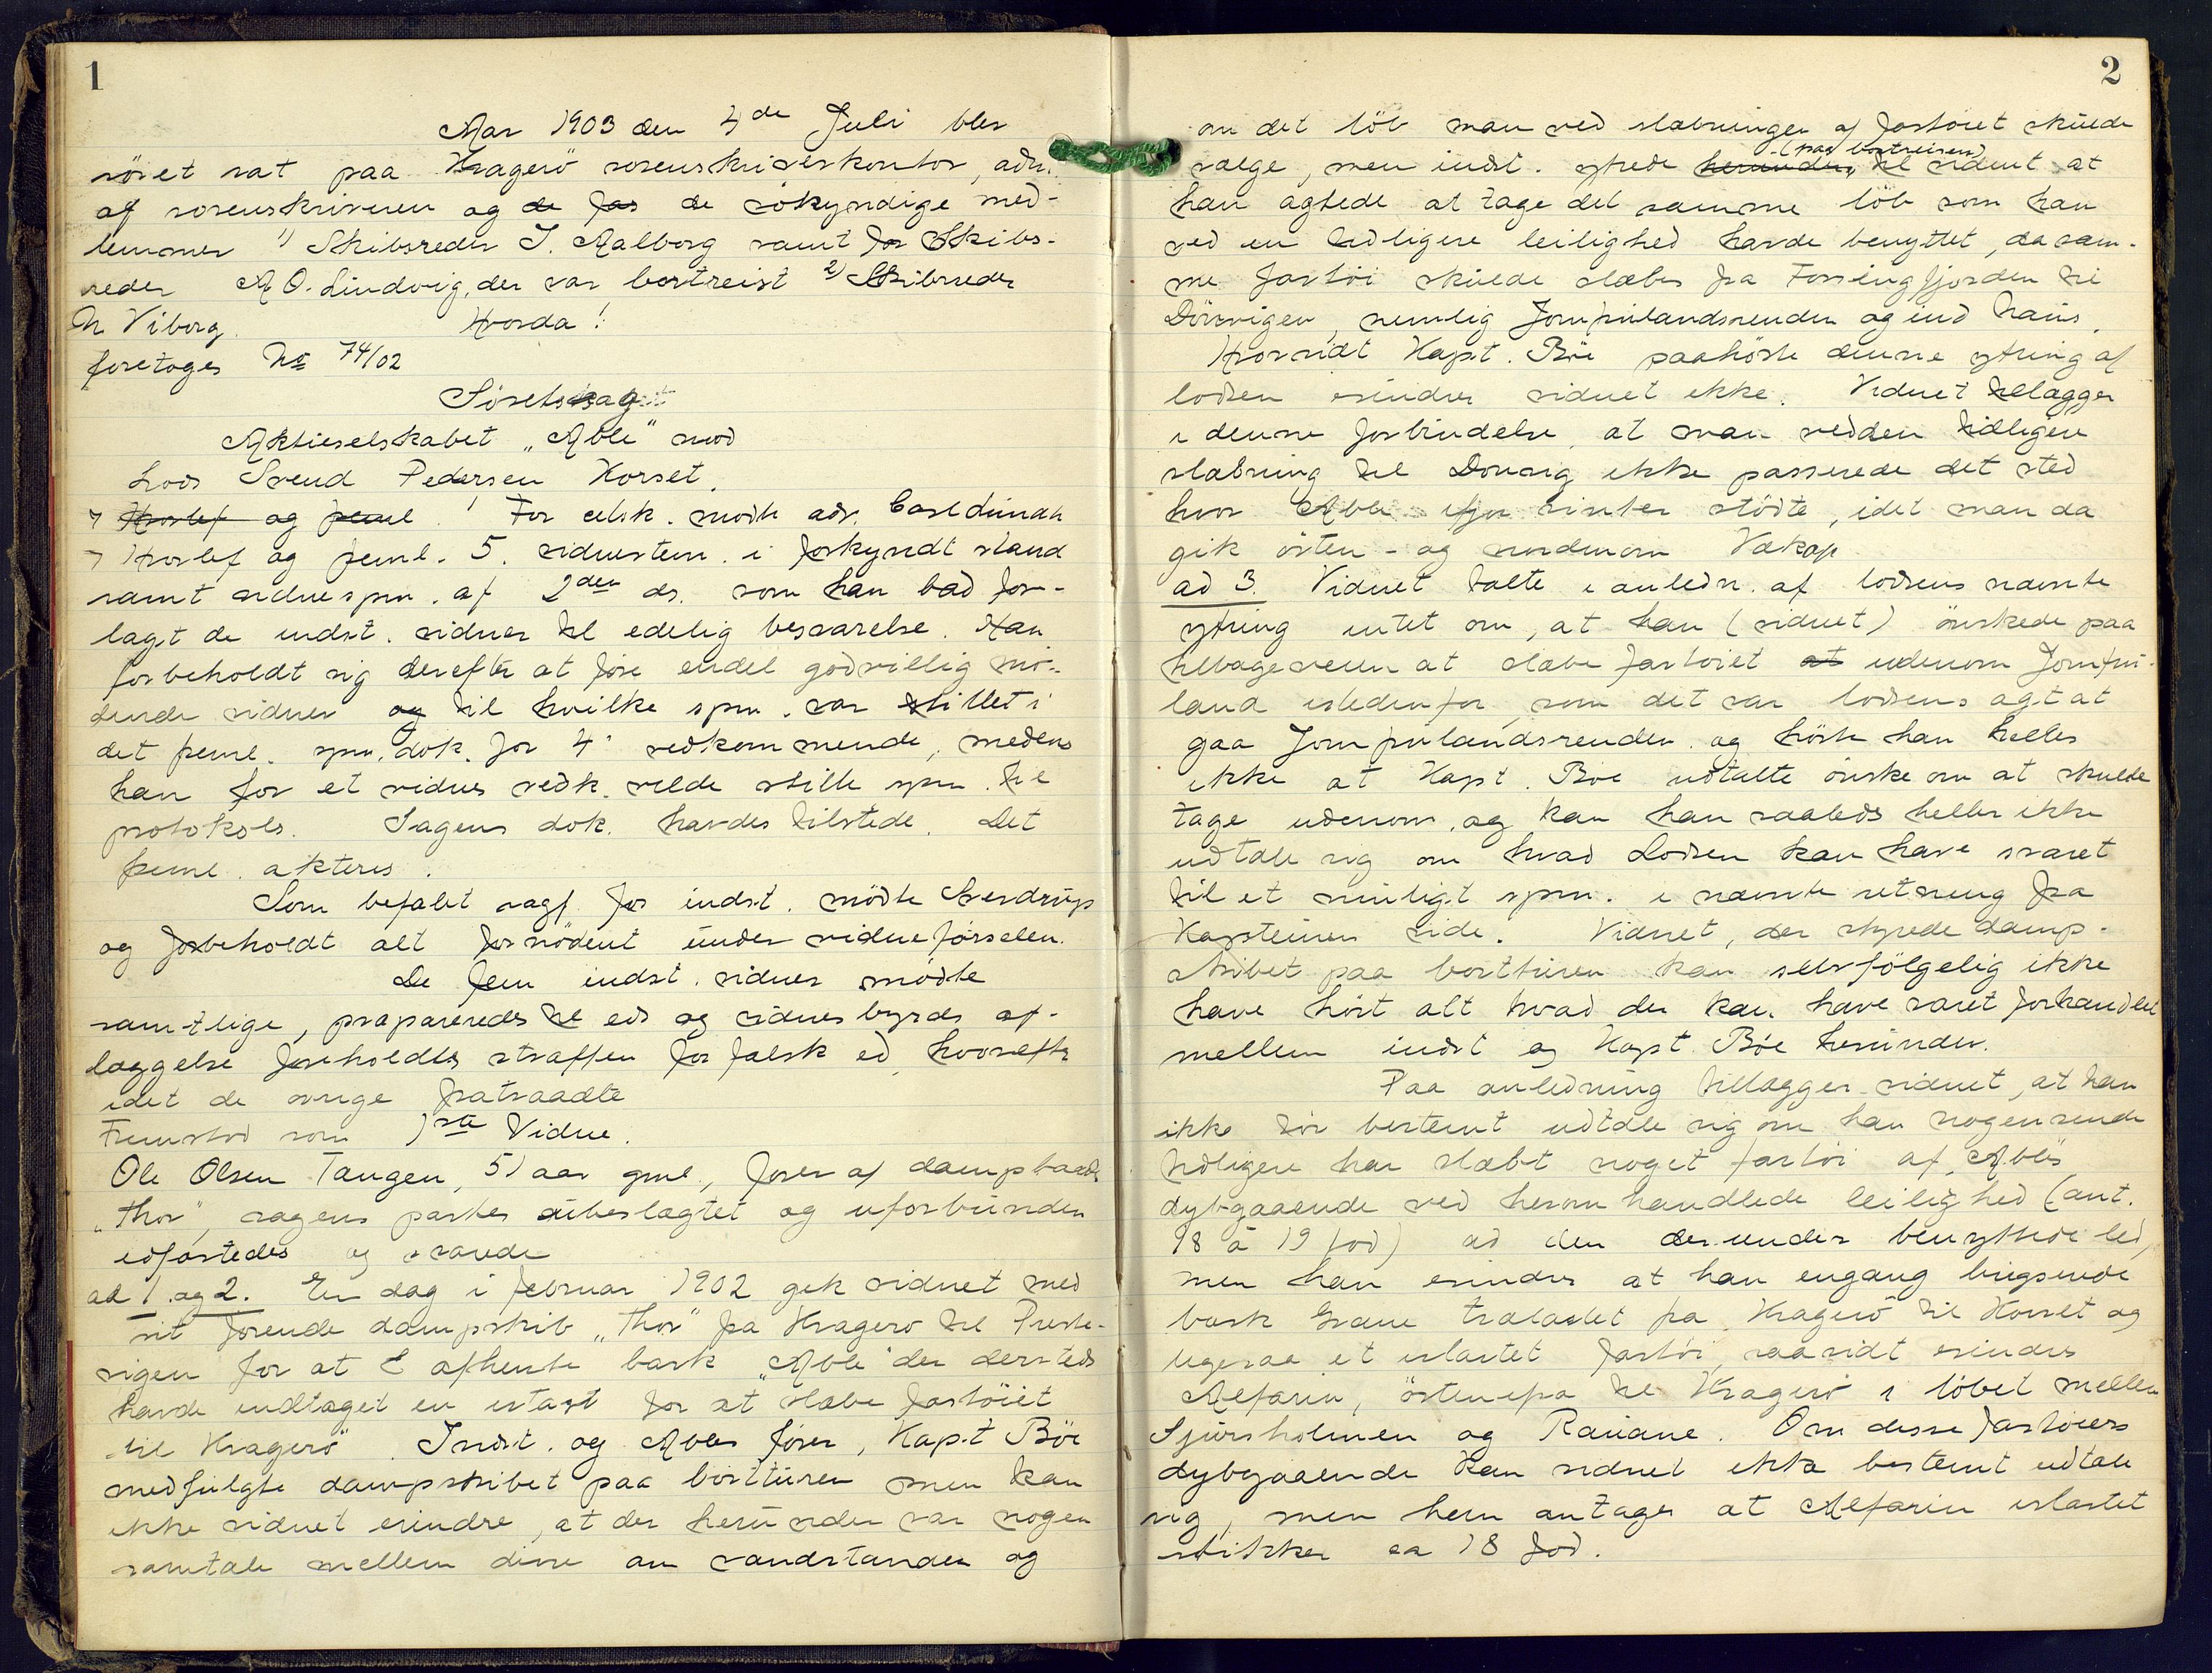 1
Aar 1903 den 4de Juli blev
söret sat paa Kragerö sorenskriverkontor, adm.
af sorenskriveren og de for de sökyndige med-
lemmer 1) Skibsreder J. Aalborg samt for Skibs-
reder A O. Lindvig, der var bortreist 2) Skibsreder
N Viborg. Hvorda!
foretoges No 74/02
Söretssag
Aktieselskabet „Able" mod
Lods Svend Pedersen Korset.
Hvorlef og freml. ! For cilsk. mödte adv. Carl Lunde
Hvorlef og freml. 5. vidnestevn. i forkyndt stand
samt vidnespm. af 2den ds. som han bad fore-
lagt de indst. vidner til edelig besvarelse. Han
forbeholdt sig derefter at före endel godvillig mö-
dende vidner og til hvilke spm. var stillet i
det freml. spm. dok. for 4 vedkommende, medens
han for et vidnes vedk. vilde stille spm. til
protokols. Sagens dok. havdes tilstede. Det
freml. akteres.
Som befalet sagf. for indst. mödte Sverdrup
og forbeholdt alt fornödent under vidneförselen.
De fem indst. vidner mödte
samtlige, præpareredes til eds og vidnesbyrds af-
læggelse foreholdtes straffen for falsk ed, hvorefter
idet de övrige fratraadte
Fremstod som 1ste Vidne.
Ole Olsen Tangen, 51 aar gml., förer af dampbaade
„Thor", sagens parter ubeslægtet og uforbunden
edfæstedes og svarede
ad 1. og 2. En dag i februar 1902 gik vidnet med
sit förende dampskib „Thor" fra Kragerö til Preste-
vigen for at afhente bark „Able" der dersteds
havde indtaget en islast for at slæbe fartöiet
til Kragerö. Indst. og Ables förer, Kapt Böe
medfulgte dampskibet paa bortturen men kan
ikke vidnet erindre, at der herunder var nogen
samtale mellem disse om vandstanden og
2
om det löb man ved slæbningen af fartöiet skulde
(paa bortreisen)
vælge, men indst. ytrede herunder, til vidnet at
han agtede at tage det samme löb som han
ved en tidligere leilighed havde benyttet, da sam-
me fartöi skulde slæbes fra Fossingfjorden til
Dörsvigen, nemlig Jomfrulandsrenden og ind hans.
Hvorvidt Kapt. Böe paahörte denne ytring af
lodsen erindrer vidnet ikke. Vidnet tillægger
i denne forbindelse, at man ved den tidligere
slæbning til Dorsvig ikke passerede det sted
hvor Able ifjor vinter stödte, idet man da
gik östen- og nordenom Vækap
ad 3. Vidnet talte i anledn. af lodsens nævnte
ytring intet om, at han (vidnet) önskede paa
tilbageveien at slæbe fartöiet at udenom Jomfru-
land istedenfor, som det var lodsens agt at
gaa Jomfrulandsrenden og hörte han heller
ikke at Kapt. Böe udtalte önske om at skulde
tage udenom, og kan han saaledes heller ikke
udtale sig om hvad Lodsen kan have svaret
til et muligt spm. i nævnte retning fra
Kapteinens side. Vidnet, der styrede damp-
skibet paa bortturen kan selvfölgelig ikke
have hört alt hvad der kan have været forhandlet
mellem indst og Kapt. Böe herunder.
Paa anledning tillægger vidnet, at han
ikke tör bestemt udtale sig om han nogensinde
tidligere har slæbt noget fartöi af Ables
dybgaaende ved heromhandlede leilighed (ant.
18 à 19 fod) ad den derunder benyttede led,
men han erindrer at han engang bugserede
bark Grane trælastet fra Kragerö til Korset og
ligesaa et islastet fartöi, saavidt erindres
Alfarin, östenifra til Kragerö i löbet mellem
Sjursholmen og Rauane. Om disse fartöiers
dybgaaende kan vidnet ikke bestemt udtale
sig, men hern antager at Alfarin islastet
stikker ca 18 fod.